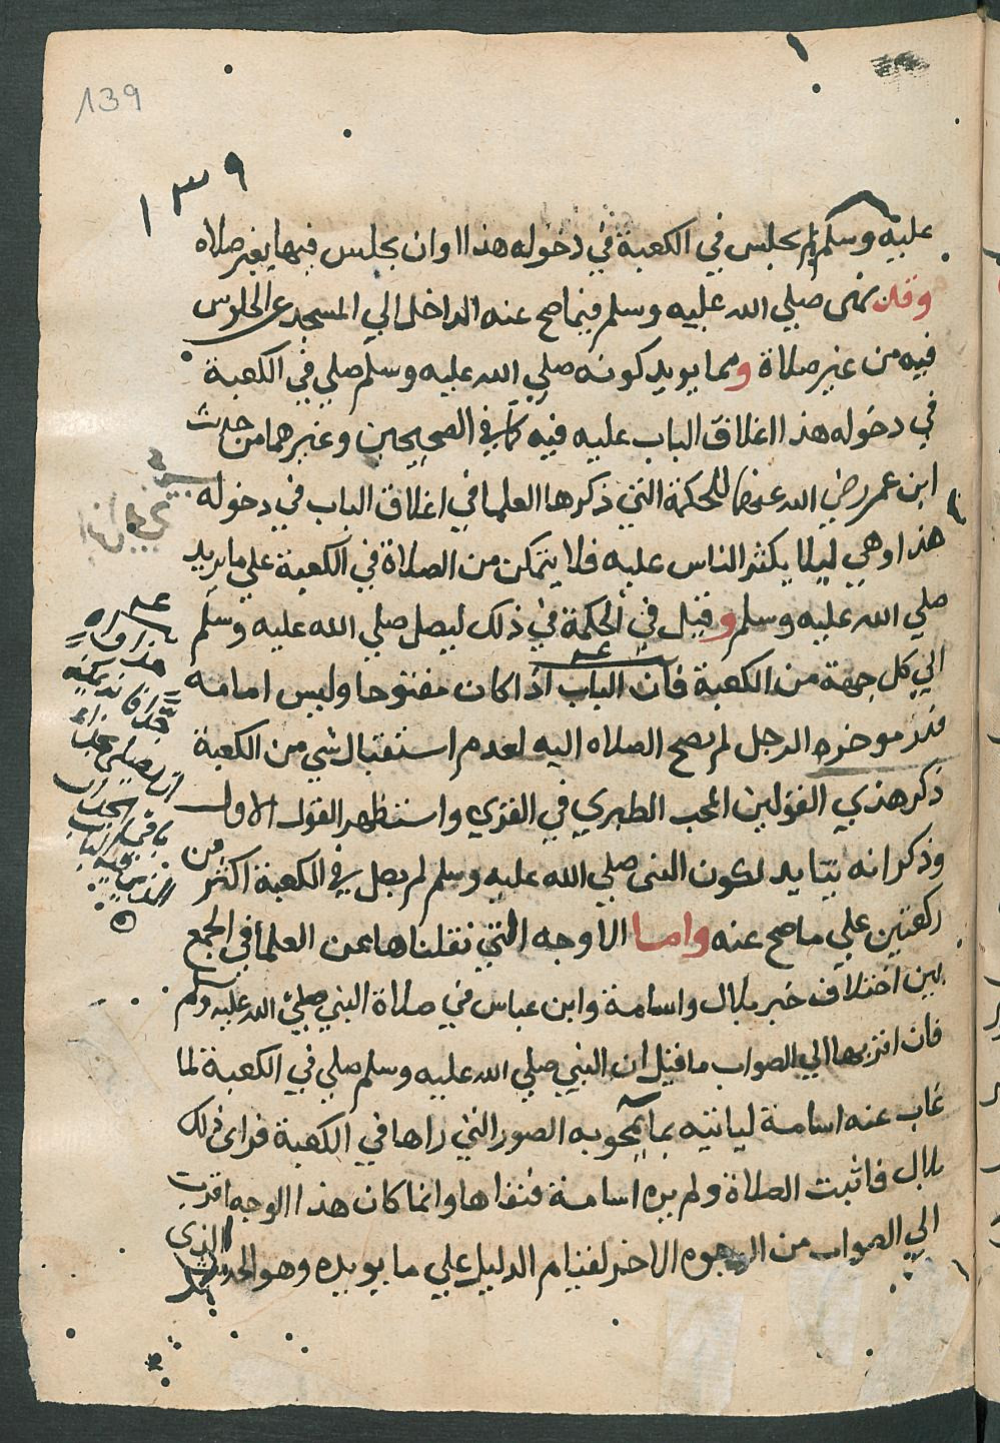 139
١٣٩
عليه وسلم لم يجلس في الكعبة في دخوله هذا او ان يجلس فيها بغير صلاه
وقد نهى صلي الله عليه وسلم فيما صح عنه الداخل الي المسجد عن الجلوس
فيه من غير صلاة ومما يويد كونه صلي الله عليه وسلم صلي في الكعبة
في دخوله هذا اغلاق الباب عليه فيه كما في الصحيحين وغيرهما من حديث
ابن عمر رضي الله عنهما للحكمة التي ذكرها العلما في اغلاق الباب في دخوله
هذا وهي ليلا يكثر الناس عليه فلا يتمكن من الصلاة في الكعبة علي ما يريد
صلي الله عليه وسلم وقيل في الحكمة في ذلك ليصل صلي الله عليه وسلم
الي كل جهة من الكعبة فان الباب اذا كان مفتوحا وليس امامه
قدر موخرة الرحل لم يصح الصلاه اليه لعدم استقبال شي من الكعبة
ذكر هذين القولين المحب الطبري في القري واستظهر القول الاول
وذكر انه يتايد لكون النبي صلي الله عليه وسلم لم يصل في الكعبة اكثر من
ركعتين علي ما صح عنه واما الاوجه التي نقلناها عن العلما في الجمع
بين اختلاف خبر بلال واسامة وابن عباس في صلاة النبي صلي الله عليه وسلم
فان اقربها الي الصواب ما قيل ان النبي صلي الله عليه وسلم صلي في الكعبة لما
غاب عنه اسامة لياتيه بما يمحو به الصور التي راها في الكعبة فراى ذلك
بلال فاثبت الصلاة ولم يره اسامة فنفاها وانما كان هذا الوجه اقرب
الي الصواب من الوجوه الاخر لقيام الدليل علي ما يويده وهو الحديث الذي